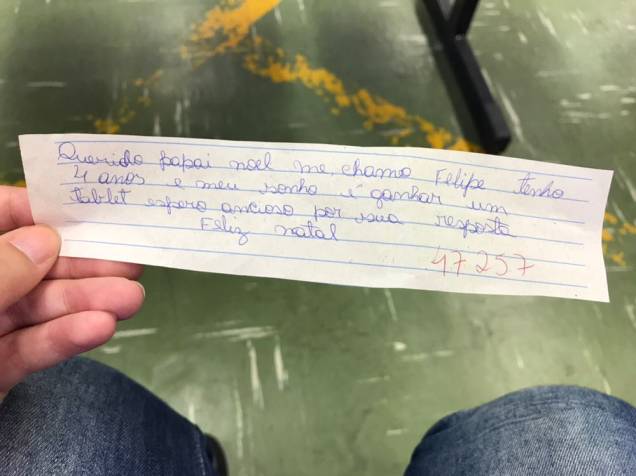 Querido papai noel me chamo Felipe tenho
4 anos e meu sonho é ganhar um
tablet espero ancioso por sua resposta
Feliz natal
47257